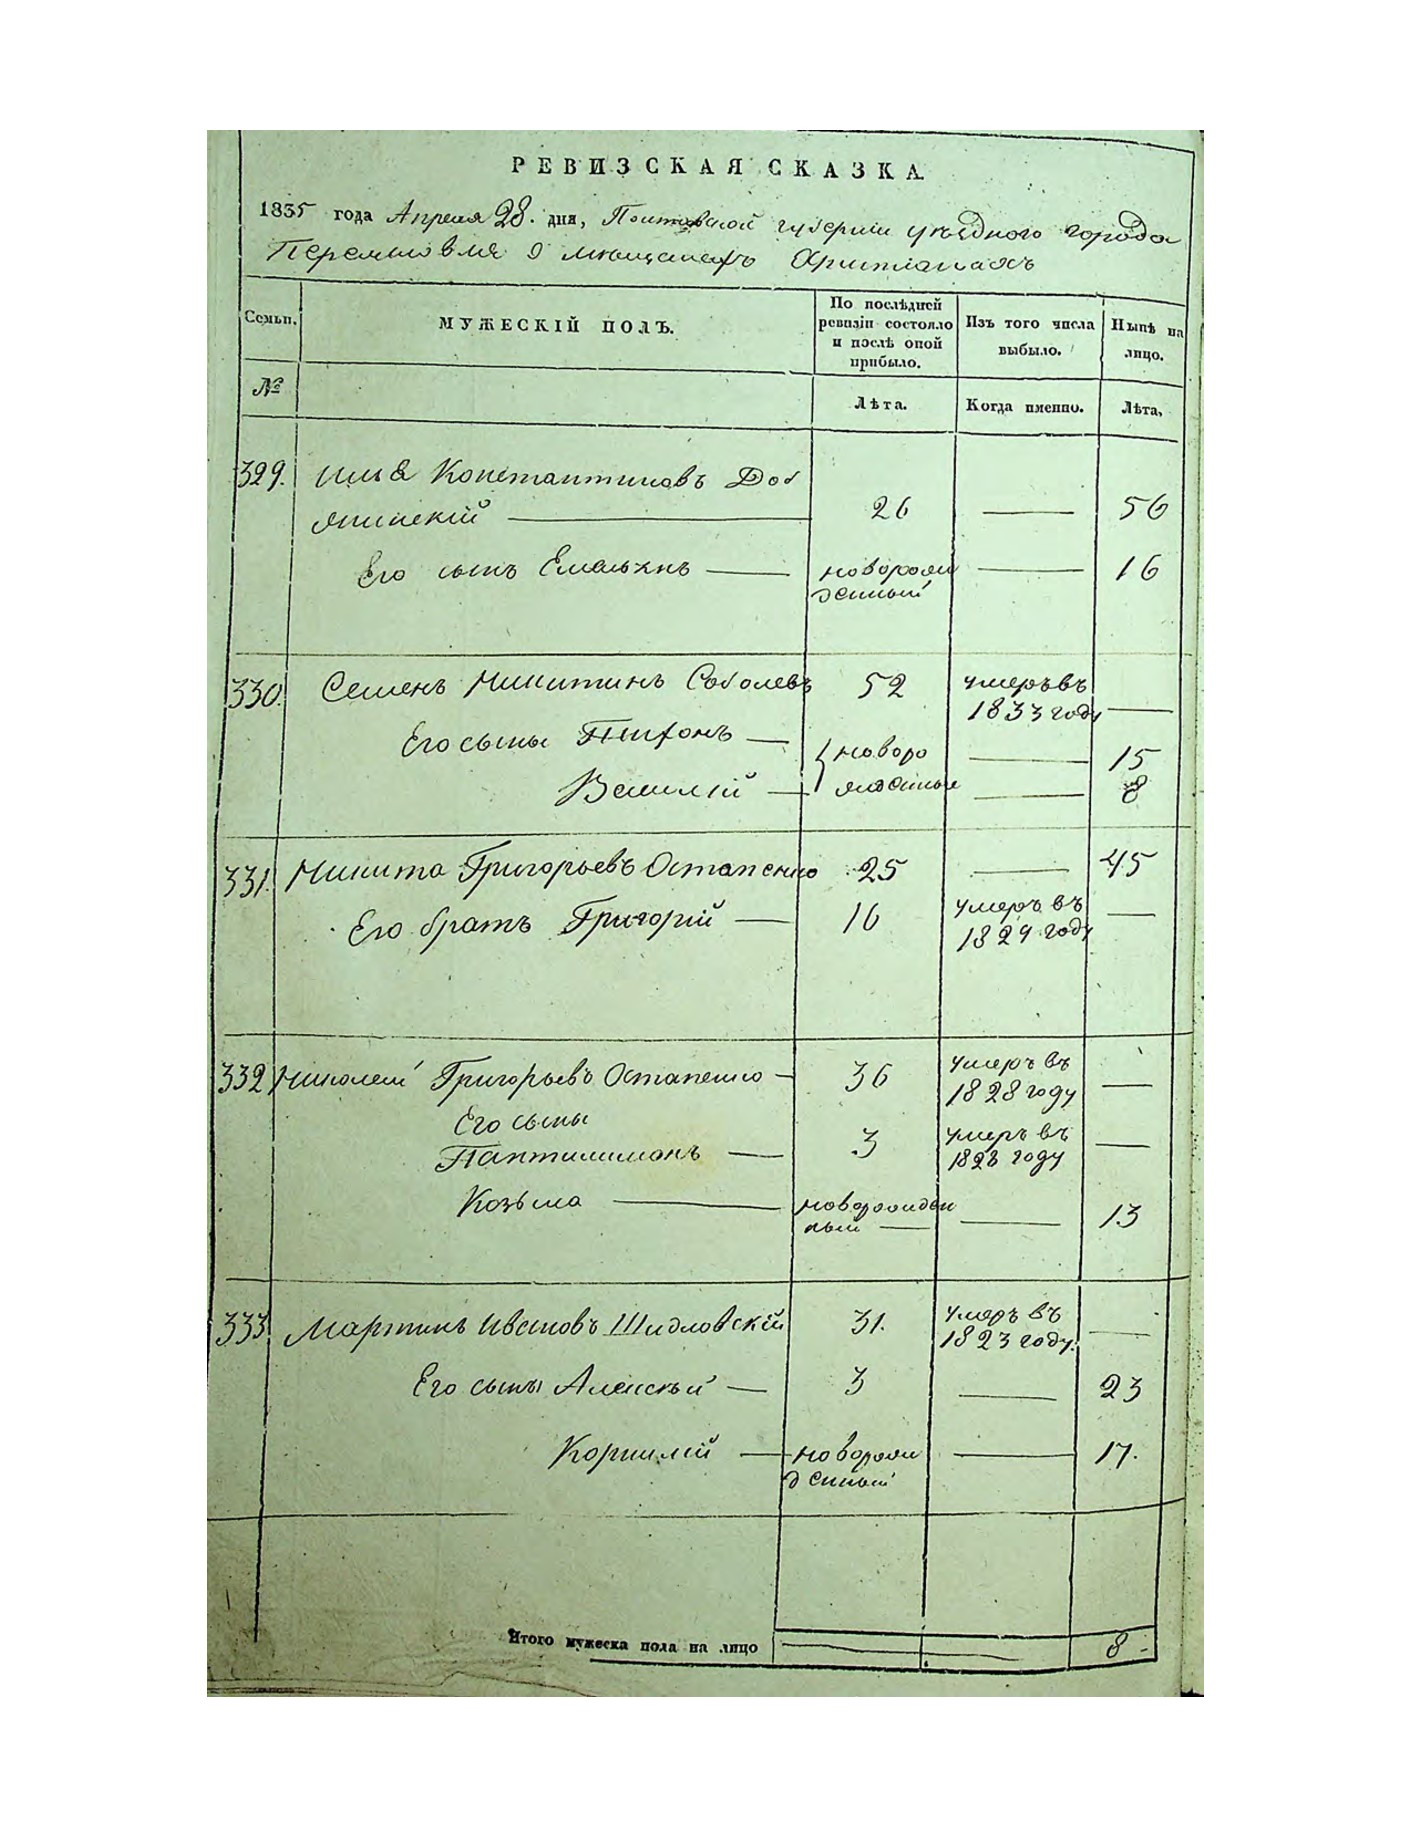 РЕВИЗСКАЯ СКАЗКА
1835 года Апреля 28. дня, Полтавской губерніи уѣзднаго города
о мѣщанахъ Христіанахъ
Семьи.
МУЖЕСКІЙ ПОЛЪ.
По послѣдней ревизіи состояло и послѣ оной прибыло.
Изъ того числа выбыло.
Нынѣ на лицо.
№
Лѣта.
Когда именно.
Лѣта,
329. Илья Константиновъ Доб
янскій — 26 — 56
Его сынъ Емельянъ — новорож
денный — 16
330. Семенъ Никитинъ Соболевъ 52 умеръ въ
1833 году —
Его сыны Тихонъ — новоро — 15
Василій — жденные — 8
331. Никита Григорьевъ Остапенко 25 — 45
Его братъ Григорій — 16 умеръ въ
1829 году —
332 Николай Григорьевъ Остапенко — 36 умеръ въ
1828 году —
Его сыны
Пантилимонъ — 3 умеръ въ
1828 году —
Козьма — новорожден
ный — — 13
333 Мартинъ Ивановъ Шидловскій 31. умеръ въ
1823 году. —
Его сыны Алексѣй — 3 — 23
Корнилій — новорож
денный — 17.
Итого мужеска пола на лицо — 8